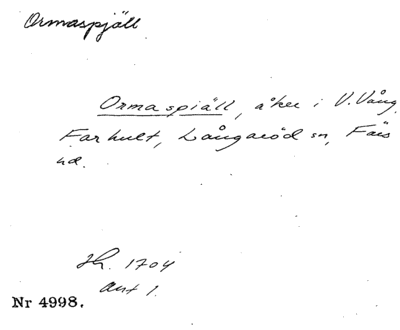 Ormaspjäll
Ormaspiäll, åker i V. Vång,
Farhult, Långaröd sn, Färs
hd.
Jh. 1704
akt 1.
Nr 4998.